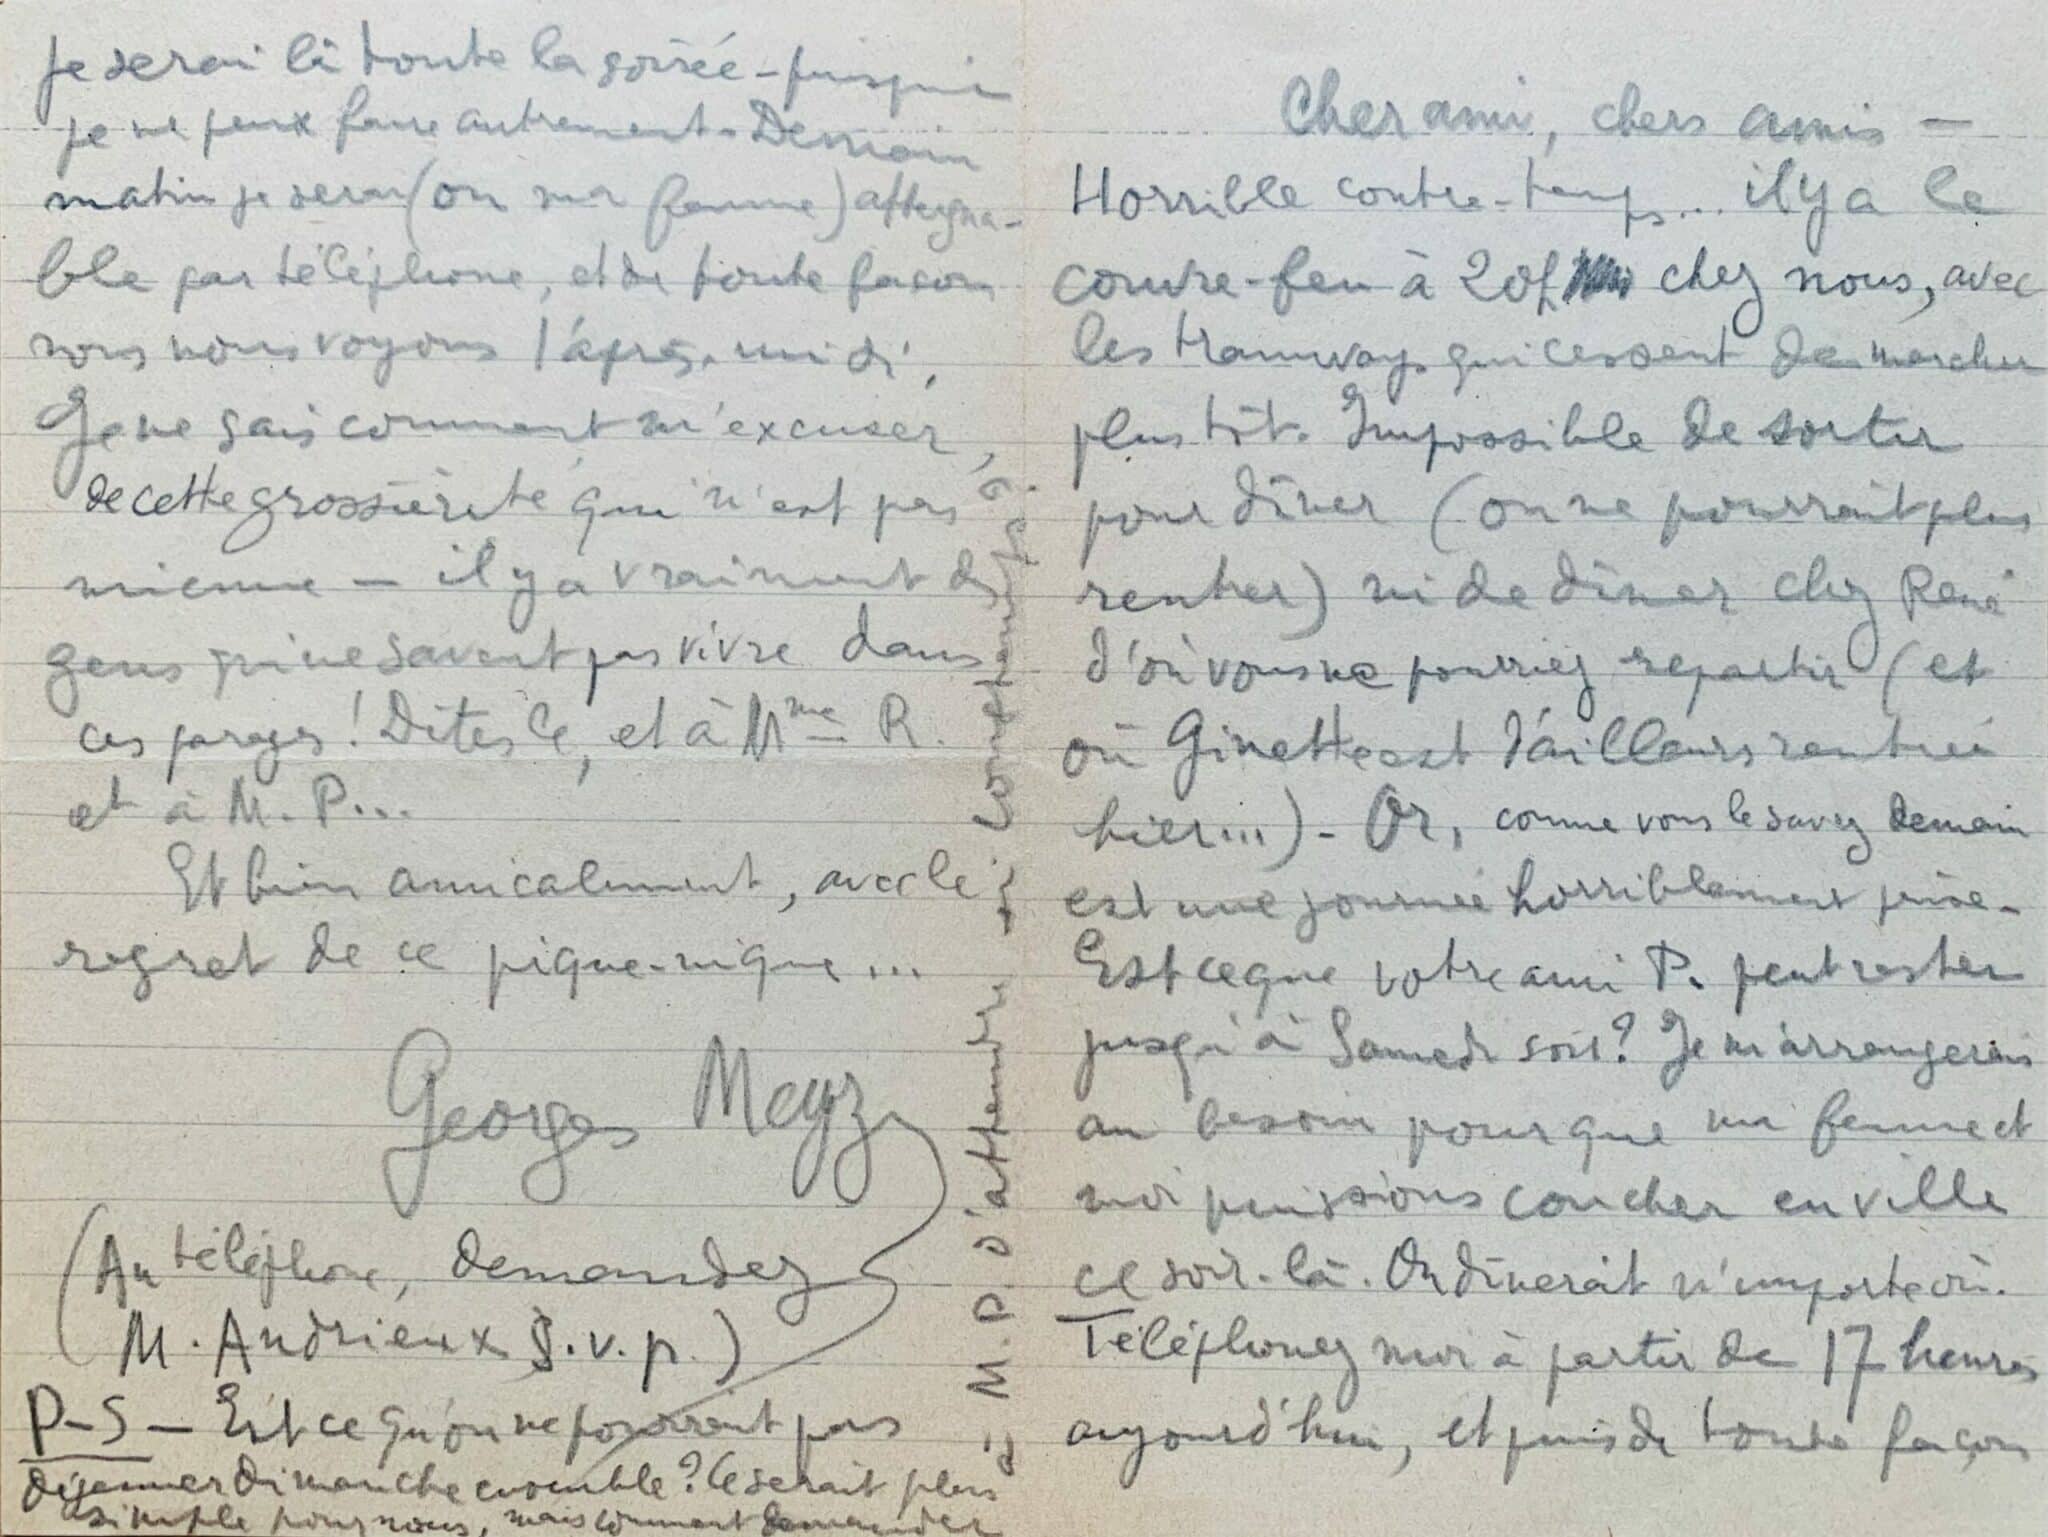 Cher ami, chers amis —
Horrible contre-temps... il y a le
couvre-feu à 20h chez nous, avec
les tramways qui cessent de marcher
plus tôt. Impossible de sortir
pour dîner (on ne pourrait plus
rentrer) ni de dîner chez René
d'où vous ne pourriez repartir (et
où Ginette est d'ailleurs rentrée
hier...) - Or, comme vous le savez demain
est une journée horriblement prise -
Est ce que votre ami P. peut rester
jusqu'à Samedi soir? Je m'arrangerais
au besoin pour que ma femme et
moi puissions coucher en ville
ce soir-là. On dînerait n'importe où.
Téléphonez moi à partir de 17 heures
aujourd'hui, et puis de toute façon
je serai là toute la soirée - puisque
je ne peux faire autrement. Demain
matin je serai (ou ma femme) atteigna-
ble par téléphone, et de toute façon
nous nous voyons l'après-midi.
Je ne sais comment m'excuser,
de cette grossièreté qui n'est pas
mienne — il y a vraiment des
gens qui ne savent pas vivre dans
ces parages! Dites le, et à Mme R.
et à M. P...
Et bien amicalement, avec le
regret de ce pique-nique...
Georges Meyz
(Au téléphone, demandez
M. Andrieux S.v.p.)
P-S — Est ce qu'on ne pourrait pas
déjeuner dimanche ensemble? Ce serait plus
simple pour nous, mais comment demander
à M. P. d'attendre